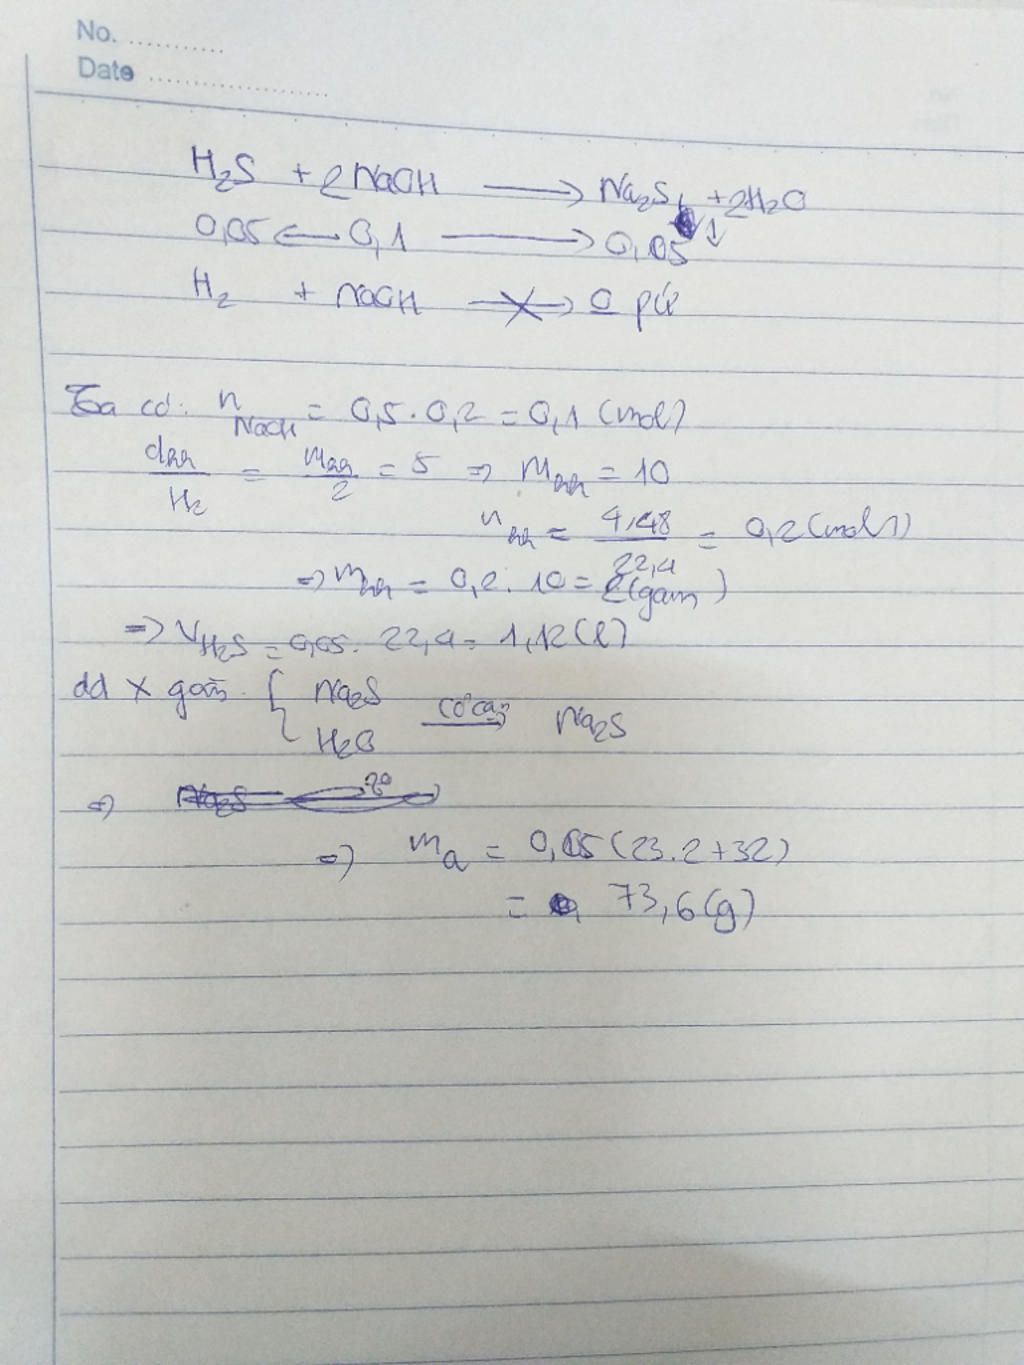 No. ............
Date ......................
H₂S + 2NaOH ⟶ Na₂S + 2H₂O
0,05 ⟵ 0,1 ⟶ 0,05 ↓
H₂ + NaOH ⟶ 0 pứ
Ta có: n NaOH = 0,5 . 0,2 = 0,1 (mol)
d hh/H₂ = M hh/2 = 5 => M hh = 10
n hh = 4,48/22,4 = 0,2 (mol)
=> m hh = 0,2 . 10 = 2 (gam)
=> V H₂S = 0,05 . 22,4 = 1,12 (l)
dd X gồm { Na₂S H₂O cô cạn ⟶ Na₂S
=>
=> m a = 0,05 (23.2+32)
= 73,6 (g)